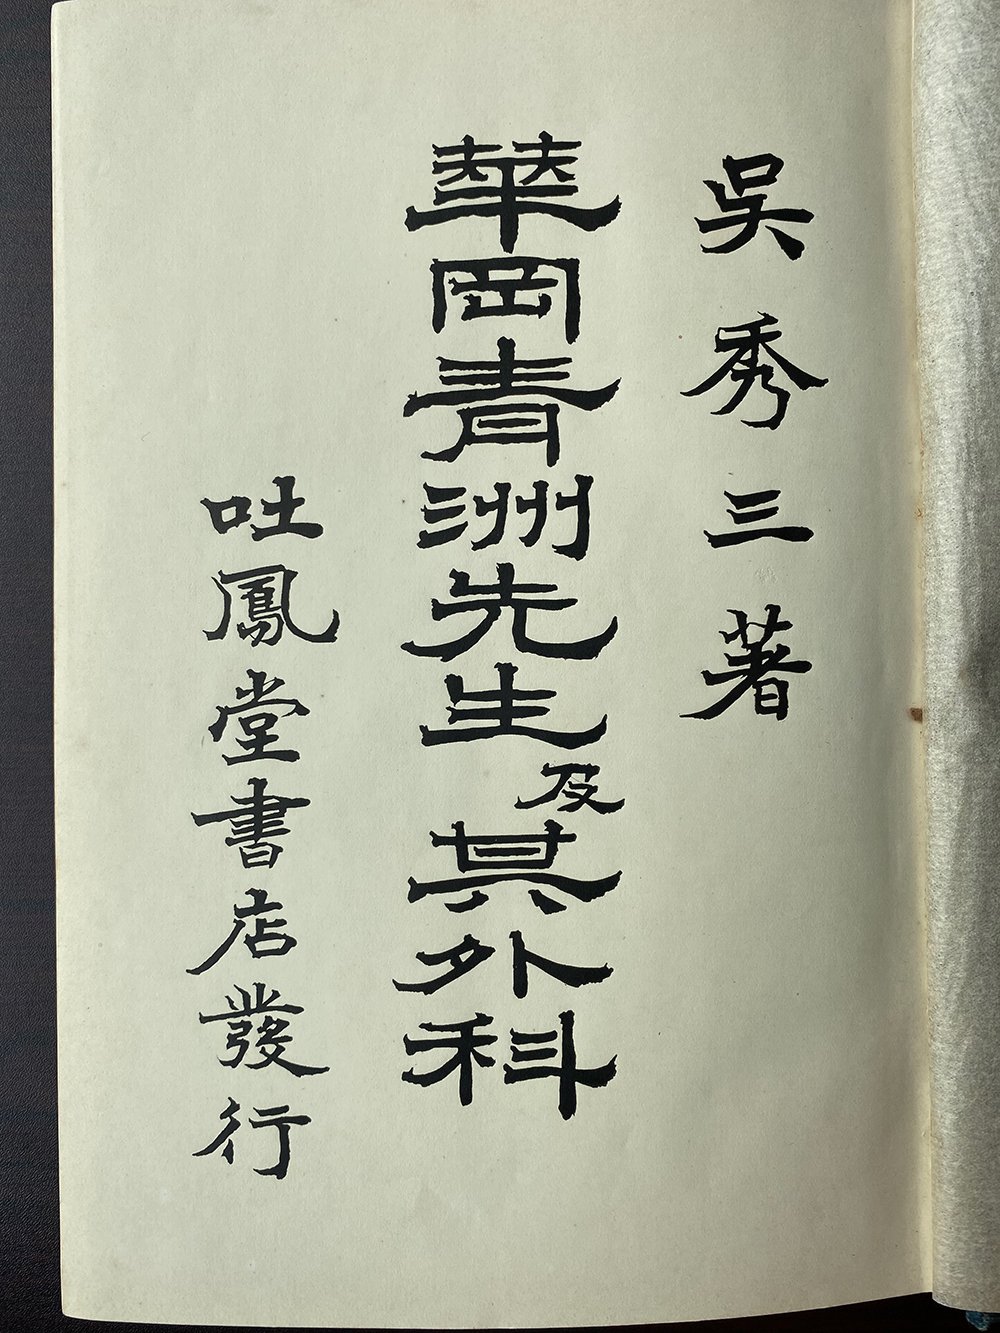 吳秀三著
華岡青洲先生及其外科
吐鳳堂書店發行